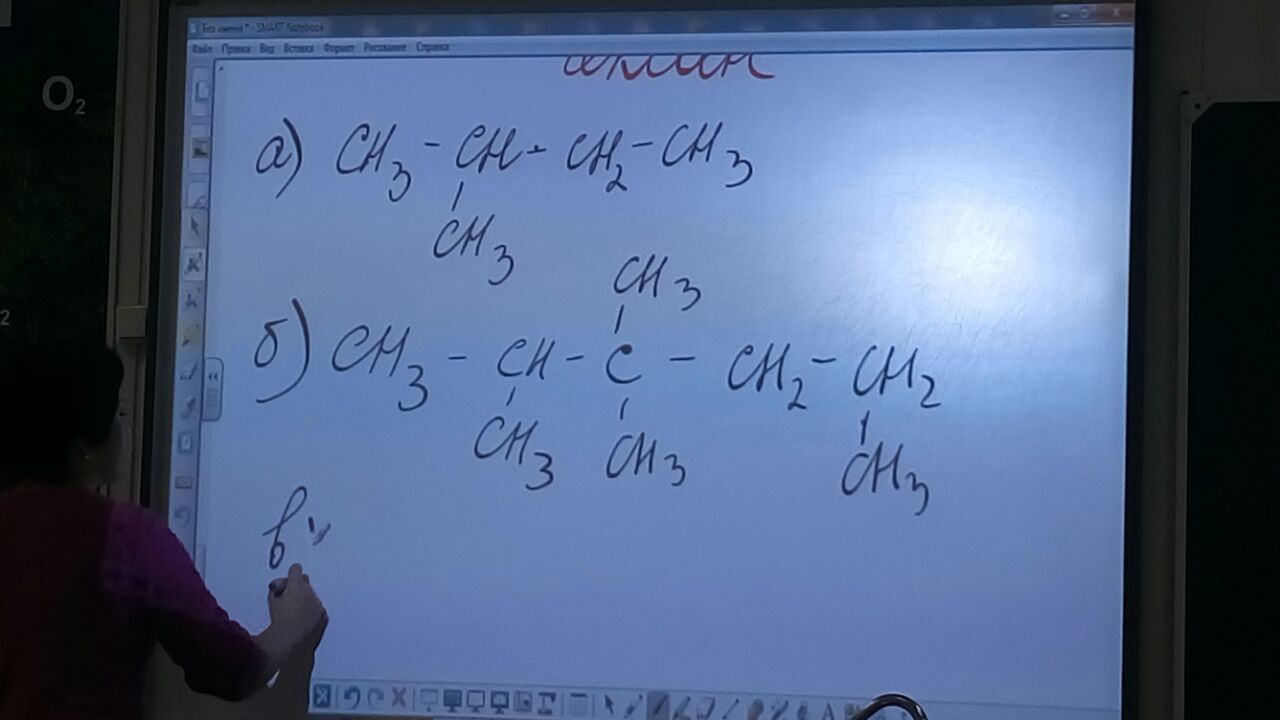 Без имени * - SMART Notebook
Файл Правка Вид Вставка Формат Рисование Справка
O2
2
а) CH3 - CH - CH2 - CH3
CH3
CH3
б) CH3 - CH - C - CH2 - CH2
CH3 CH3 CH3
в